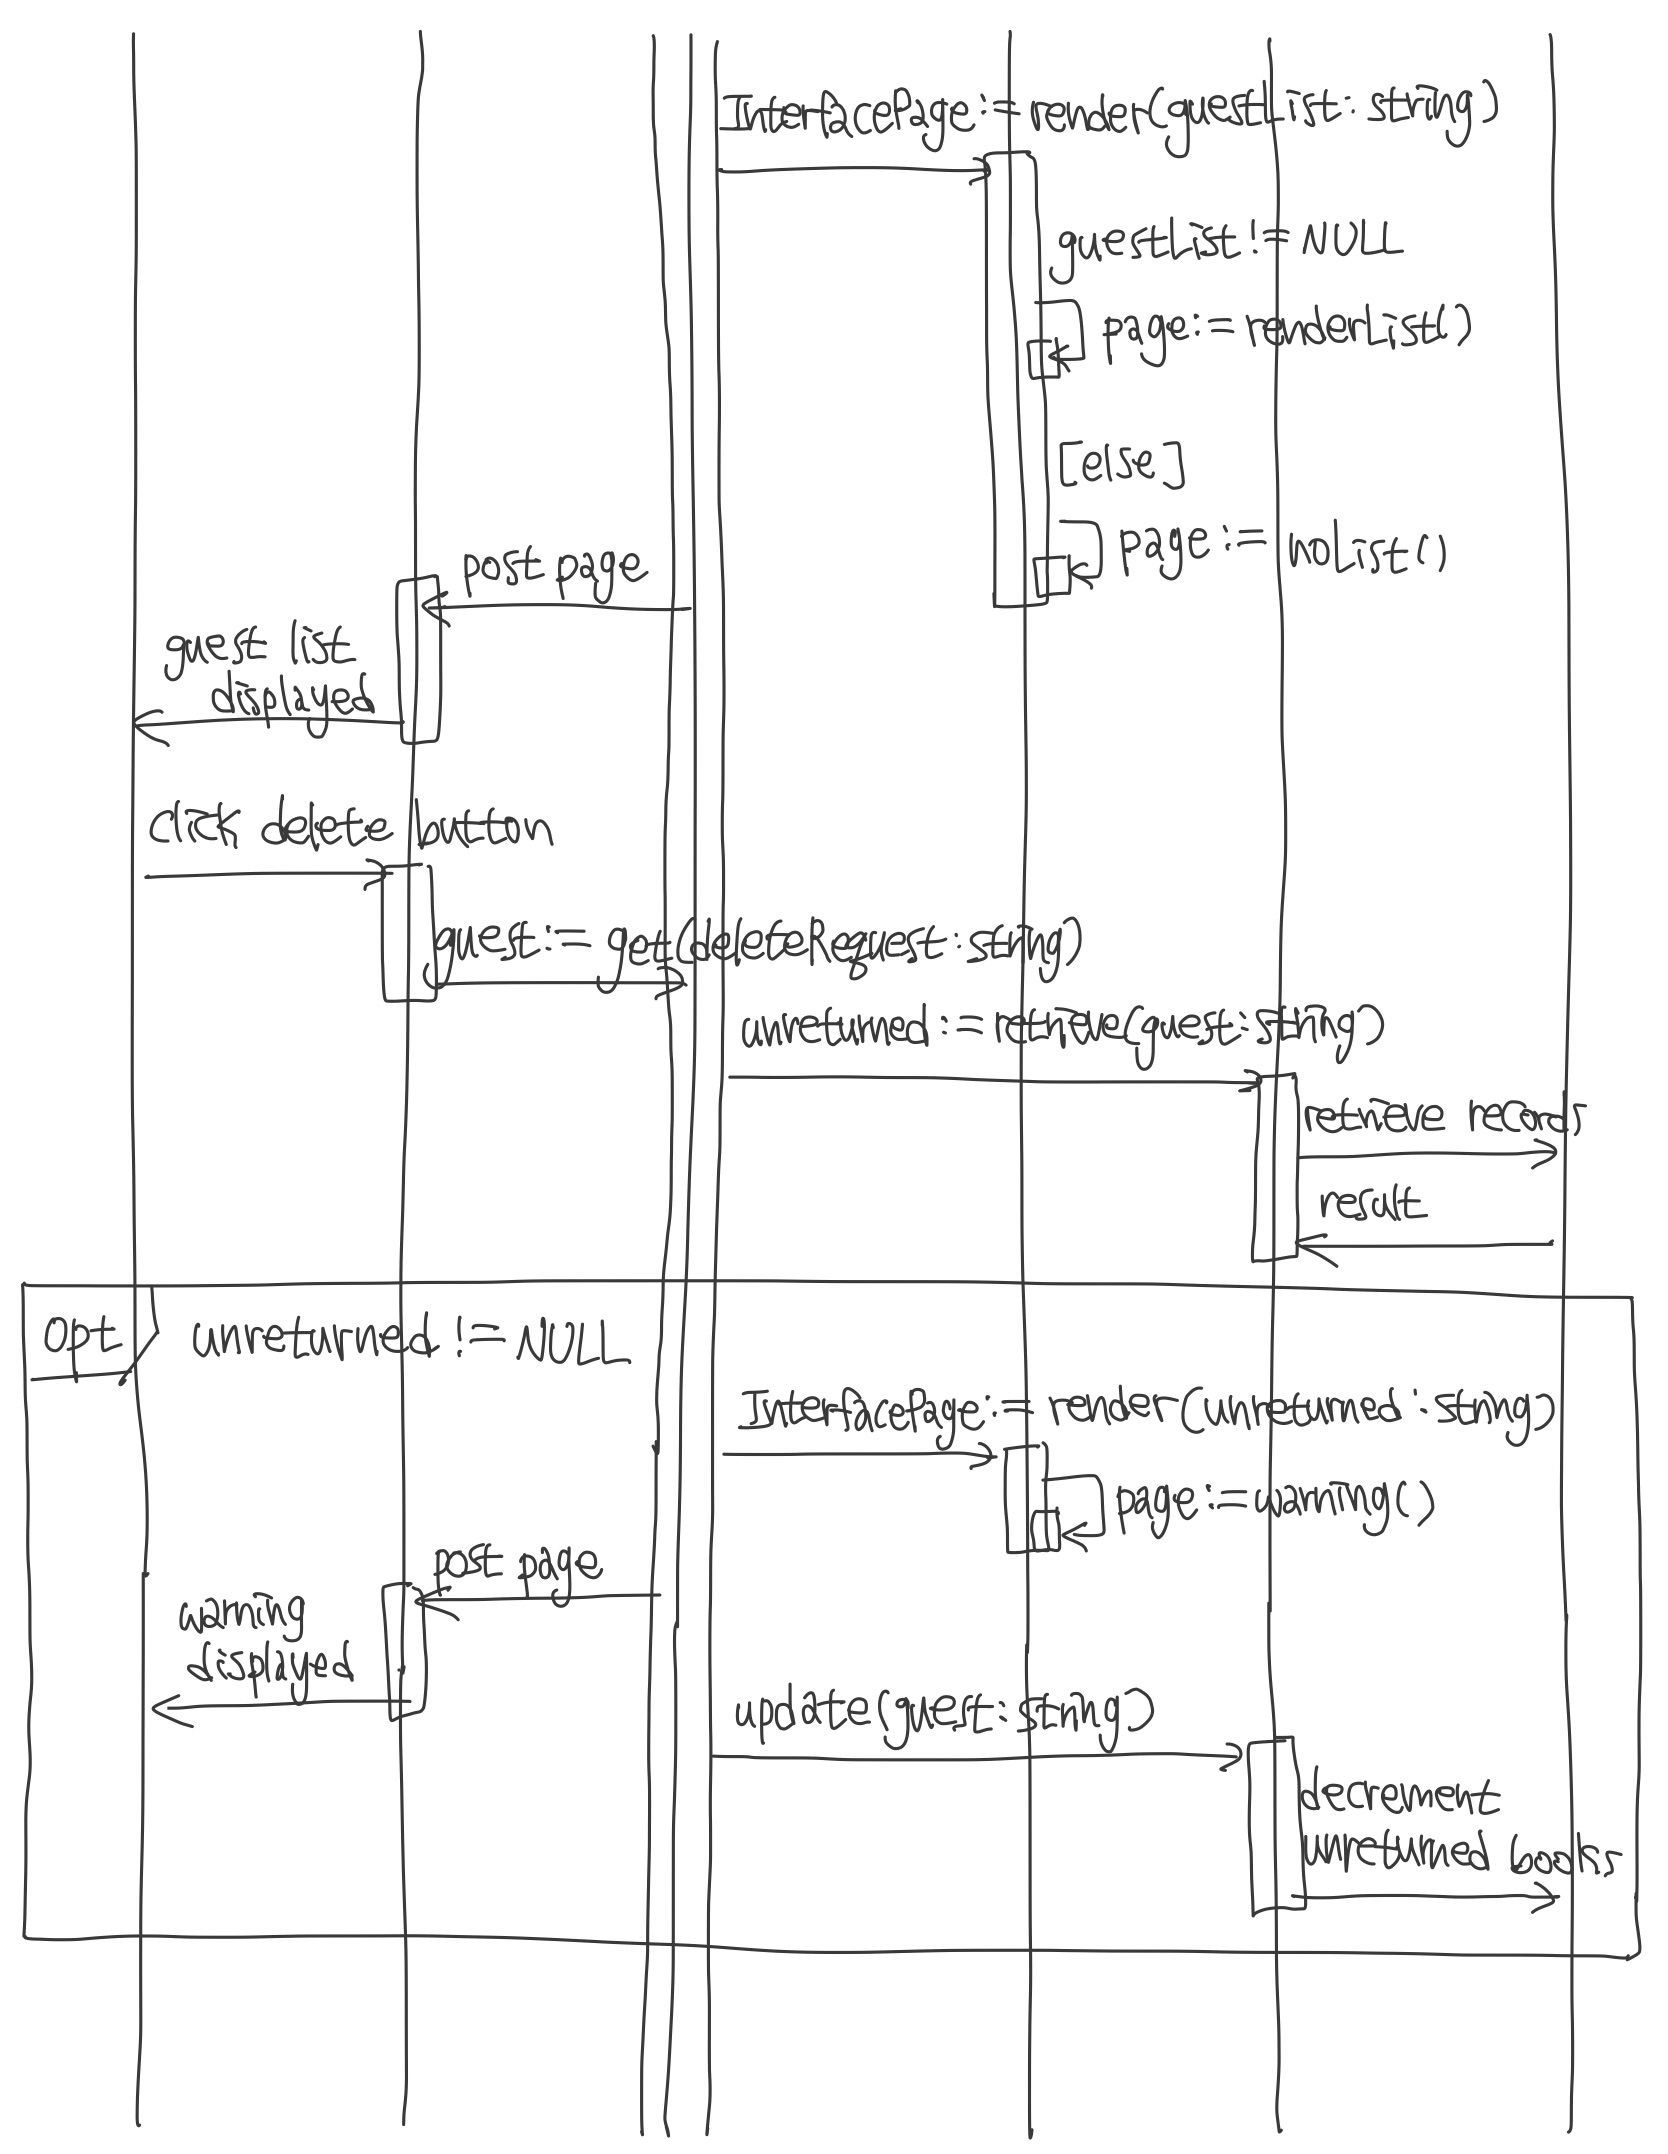 InterfacePage:=render(guestList:string)
guestList!=NULL
page:=renderList()
[else]
page:= noList()
post page
guest list
displayed
click delete button
guest:=get(deleteRequest:string)
unreturned:=retrieve(guest:string)
retrieve records
result
opt
unreturned!=NULL
InterfacePage:= render(unreturned:string)
page:=warning()
post page
warning
displayed
update(guest:string)
decrement
unreturned books